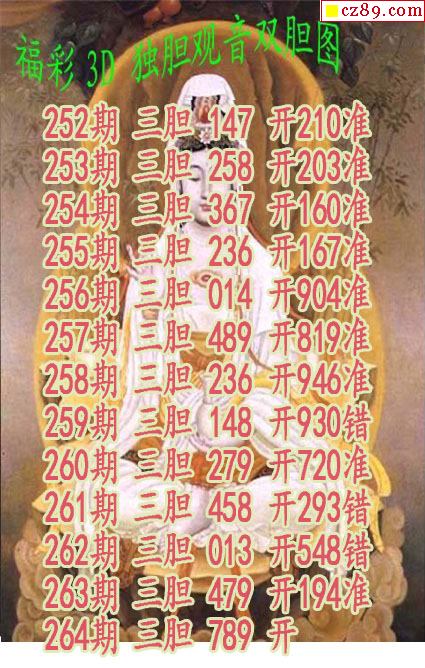 cz89.com
福彩 3D 独胆观音双胆图
252期 三胆 147 开210准
253期 三胆 258 开203准
254期 三胆 367 开160准
255期 三胆 236 开167准
256期 三胆 014 开904准
257期 三胆 489 开819准
258期 三胆 236 开946准
259期 三胆 148 开930错
260期 三胆 279 开720准
261期 三胆 458 开293错
262期 三胆 013 开548错
263期 三胆 479 开194准
264期 三胆 789 开